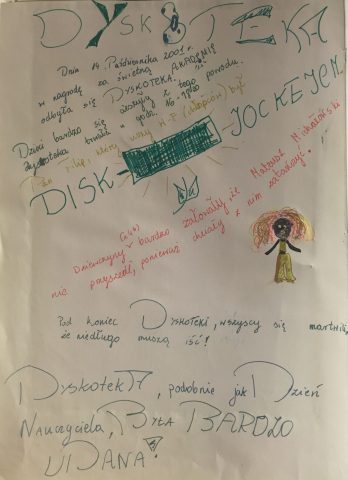 DYSKOTEKA
Dnia 14 Października 2001 r.
w nagrodę za świetną AKADEMIĘ
odbyła się DYSKOTEKA!
Dzieci bardzo się z tego powodu.
Dyskoteka trwała w godz. 16-18.00
Pan był
DISK-JOCKEJEM!
(z 4b)
Dziewczyny bardzo żałowały, że Mateusz Michalski
nie przyszedł, ponieważ chciały z nim zatańczyć.
Pod koniec DYSKOTEKI, wszyscy się martwili,
że niedługo muszą iść!
DYSKOTEKA, podobnie jak DZIEŃ
NAUCZYCIELA, BYŁA BARDZO
UDANA!